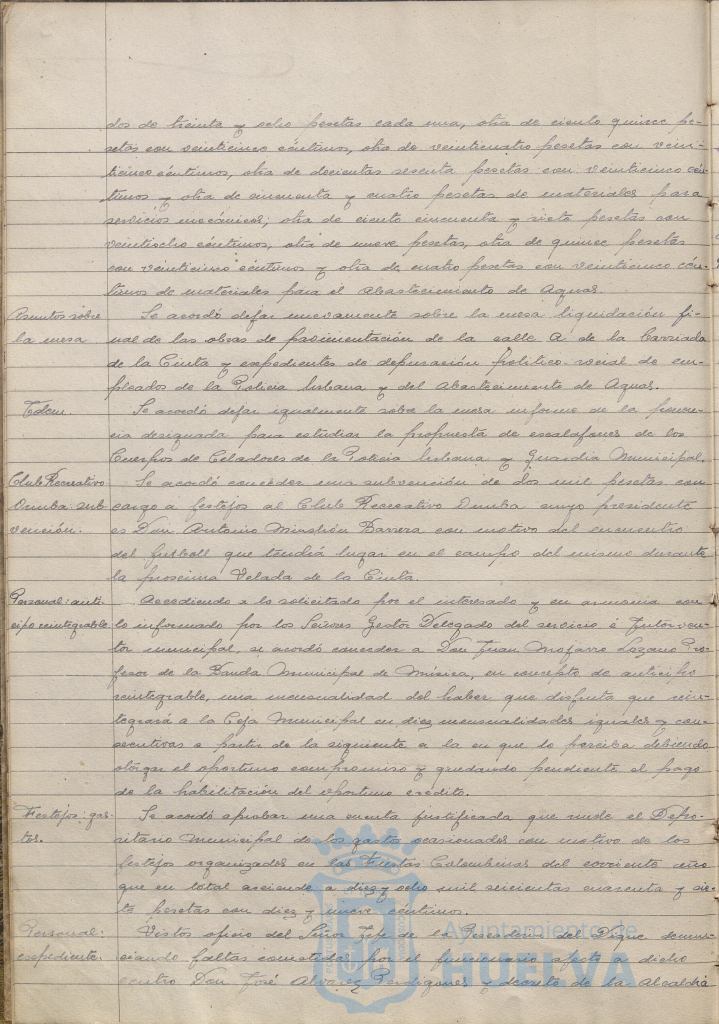 dos de treinta y ocho pesetas cada una, otra de ciento quince pe-
setas con veinticinco céntimos, otra de veinticuatro pesetas con vein-
ticinco céntimos, otra de doscientas sesenta pesetas con veinticinco cén-
timos y otra de cincuenta y cuatro pesetas de materiales para
servicios mecánicos; otra de ciento cincuenta y siete pesetas con
veintiocho céntimos, otra de nueve pesetas, otra de quince pesetas
con veinticinco céntimos y otra de cuatro pesetas con veinticinco cén-
timos de materiales para el Abastecimiento de Aguas.
Asuntos sobre
la mesa
Se acordó dejar nuevamente sobre la mesa liquidación fi-
nal de las obras de pavimentación de la calle A de la Barriada
de la Cinta y expedientes de depuración político-social de em-
pleados de la Policía Urbana y del Abastecimiento de Aguas.
Idem.
Se acordó dejar igualmente sobre la mesa informe de la ponen-
cia designada para estudiar la propuesta de escalafones de los
Cuerpos de Celadores de la Policía Urbana y Guardia Municipal.
Club Recreativo
Onuba: sub-
vención.
Se acordó conceder una subvención de dos mil pesetas con
cargo a festejos al Club Recreativo Onuba cuyo presidente
es Don Antonio Barrera con motivo del encuentro
del futboll que tendrá lugar en el campo del mismo durante
la proxima Velada de la Cinta.
Personal: anti-
cipo reintegrable.
Accediendo a lo solicitado por el interesado y en armonia con
lo informado por los Señores Gestor Delegado del servicio é Interven-
tor municipal, se acordó conceder a Don Juan Mojarro Lozano Pro-
fesor de la Banda Municipal de Música, en concepto de anticipo
reintegrable, una mensualidad del haber que disfruta que rein-
tegrará a la Caja Municipal en diez mensualidades iguales y con-
secutivas a partir de la siguiente a la en que lo perciba debiendo
otorgar el oportuno compromiso y quedando pendiente el pago
de la habilitación del oportuno crédito.
Festejos: gas-
tos.
Se acordó aprobar una cuenta justificada que rinde el Depo-
sitario municipal de los gastos ocasionados con motivo de los
festejos organizados en las Fiestas Colombinas del corriente año
que en total asciende a diez y ocho mil seiscientas cuarenta y sie-
te pesetas con diez y nueve céntimos.
Personal:
expediente.
Vistos oficio del Señor Jefe de la Pescaderia del Dique denun-
ciando faltas cometidas por el funcionario afecto a dicho
centro Don José Alvarez Perdigones y decreto de la Alcaldia
Ayuntamiento de
HUELVA